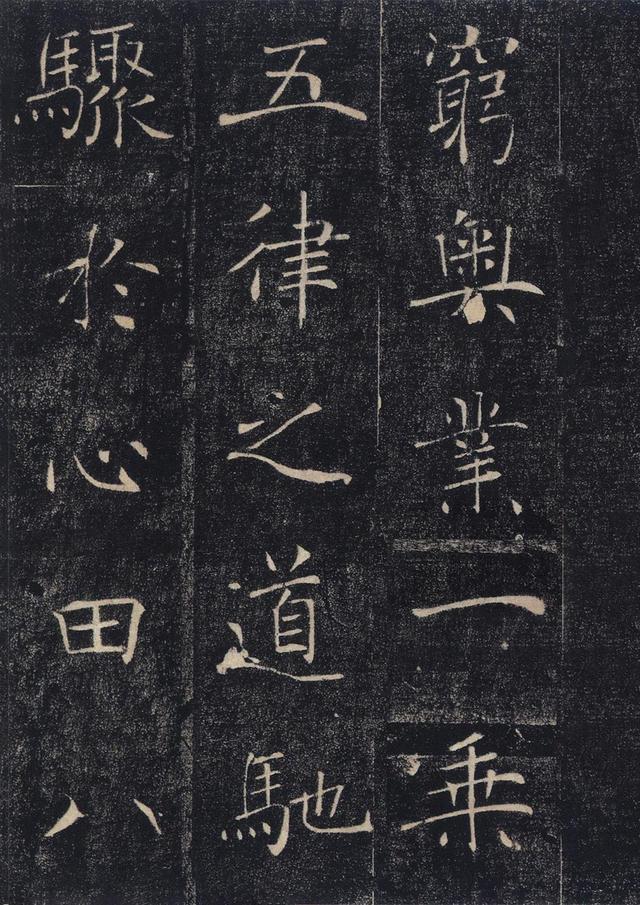 窮奧業一乗
五律之道馳
驟於心田八